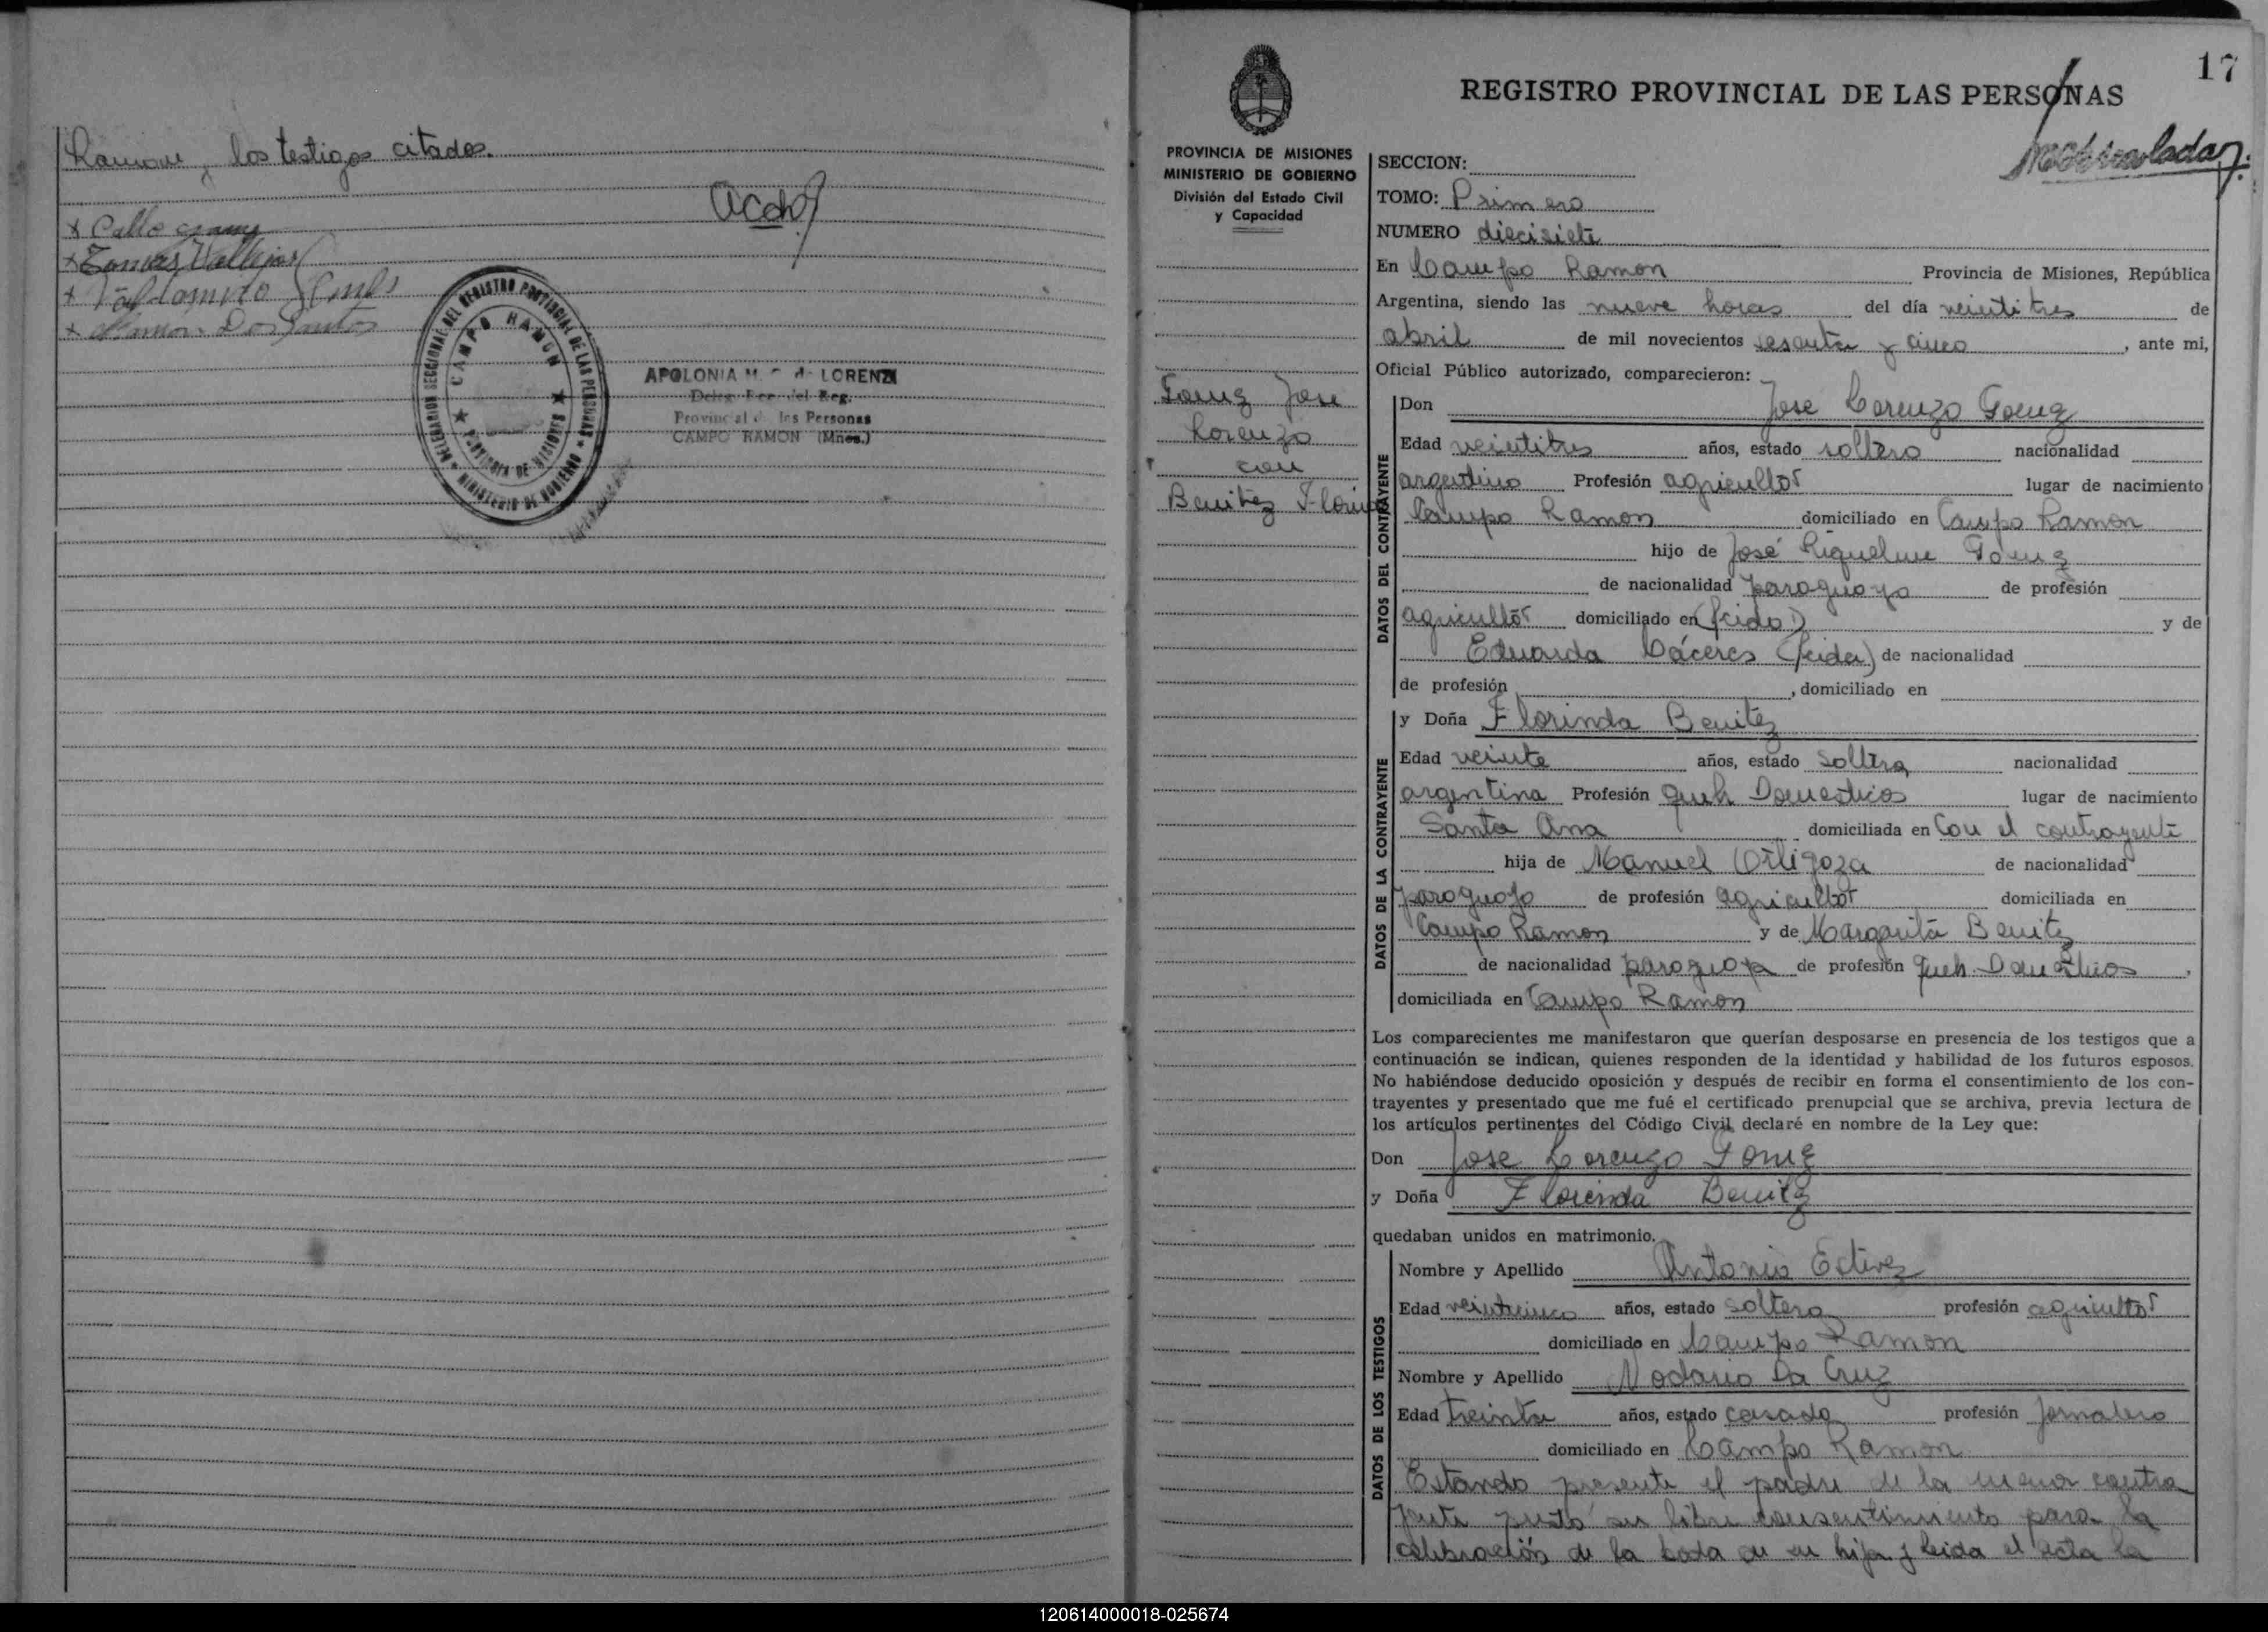 Ramon y los testigos citados.
Acdl
x Tomas Vallejos
x Ramon Dos Santos
DELEGACION SECCIONAL DEL REGISTRO PROVINCIAL DE LAS PERSONAS
CAMPO RAMON
PROVINCIA DE MISIONES
MINISTERIO DE GOBIERNO
APOLONIA M. C. de LORENZI
Deleg. Rec. del Reg.
Provincial de las Personas
CAMPO RAMON (Mnes.)
17
REGISTRO PROVINCIAL DE LAS PERSONAS
PROVINCIA DE MISIONES
MINISTERIO DE GOBIERNO
División del Estado Civil
y Capacidad
Gomez Jose
Lorenzo
con
Benitez Florinda
SECCION:
TOMO: Primero
NUMERO diecisiete
En Campo Ramon Provincia de Misiones, República
Argentina, siendo las nueve horas del día veintitres de
abril de mil novecientos sesenta y cinco, ante mi,
Oficial Público autorizado, comparecieron:
DATOS DEL CONTRAYENTE
Don Jose Lorenzo Gomez
Edad veintitres años, estado soltero nacionalidad
argentino Profesión agricultor lugar de nacimiento
Campo Ramon domiciliado en Campo Ramon
hijo de José Riquelme Gomez
de nacionalidad paraguayo de profesión
agricultor domiciliado en (fcido) y de
Eduarda Cáceres (fcida) de nacionalidad
de profesión , domiciliado en
DATOS DE LA CONTRAYENTE
y Doña Florinda Benitez
Edad veinte años, estado soltera nacionalidad
argentina Profesión queh Domesticos lugar de nacimiento
Santa Ana domiciliada en Con el contrayente
hija de Manuel Ortigoza de nacionalidad
paraguayo de profesión agricultor domiciliada en
Campo Ramon y de Margarita Benitez
de nacionalidad paraguaya de profesión queh. Domesticos,
domiciliada en Campo Ramon
Los comparecientes me manifestaron que querían desposarse en presencia de los testigos que a
continuación se indican, quienes responden de la identidad y habilidad de los futuros esposos.
No habiéndose deducido oposición y después de recibir en forma el consentimiento de los con-
trayentes y presentado que me fué el certificado prenupcial que se archiva, previa lectura de
los artículos pertinentes del Código Civil declaré en nombre de la Ley que:
Don Jose Lorenzo Gomez
y Doña Florinda Benitez
quedaban unidos en matrimonio.
DATOS DE LOS TESTIGOS
Nombre y Apellido Antonio Estivez
Edad veinticinco años, estado soltero profesión agricultor
domiciliado en Campo Ramon
Nombre y Apellido Nodario Da Cruz
Edad treinta años, estado casado profesión jornalero
domiciliado en Campo Ramon
Estando presente el padre de la menor contra
yente prestó su libre consentimiento para la
celebración de la boda de su hija y leida el acta la
120614000018-025674